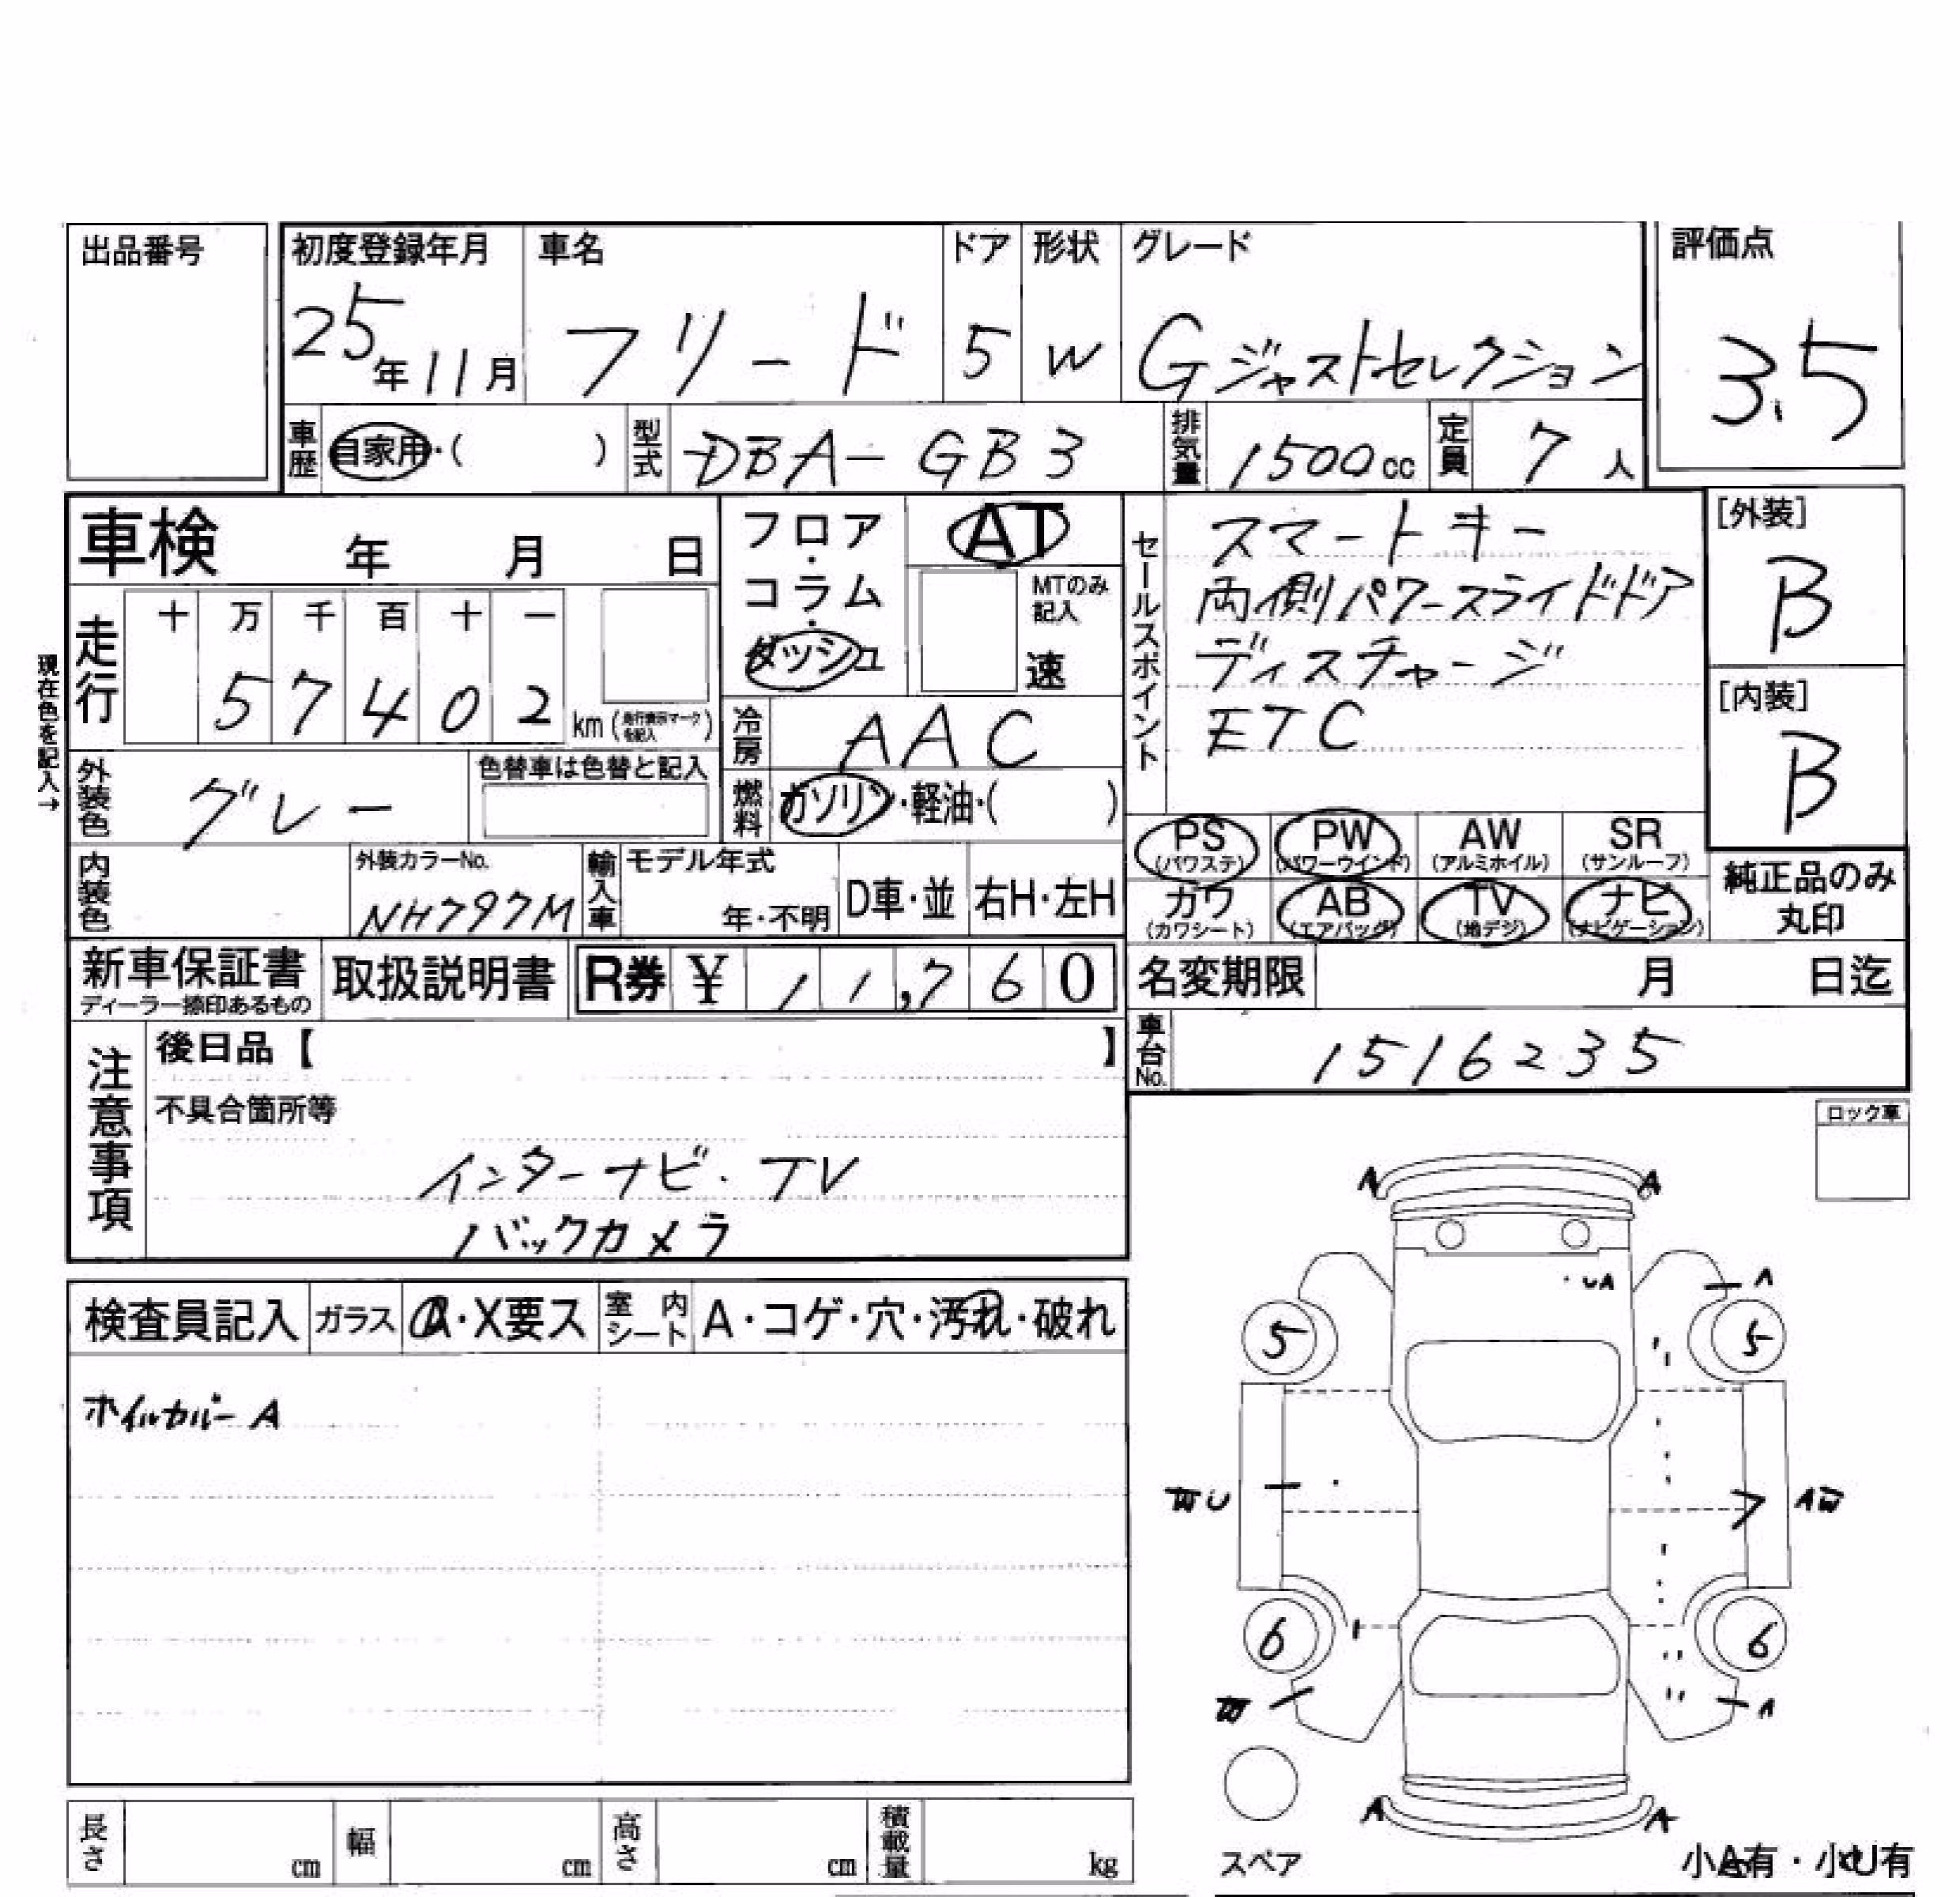 出品番号
初度登録年月 車名 ドア 形状 グレード 評価点
25年11月 フリード 5 W Gジャストセレクション 3.5
車歴 自家用・( ) 型式 DBA-GB3 排気量 1500cc 定員 7人
車検 年 月 日
フロア・コラム・ダッシュ
AT
MTのみ記入
速
セールスポイント
スマートキー
両側パワースライドドア
ディスチャージ
ETC
[外装]
B
[内装]
B
現在色を記入→
走行 十 万 千 百 十 一
57402 km (走行表示マークを記入)
冷房 AAC
外装色 グレー 色替車は色替と記入
燃料 ガソリン・軽油・( )
PS (パワステ) PW (パワーウインド) AW (アルミホイル) SR (サンルーフ)
カワ (カワシート) AB (エアバッグ) TV (地デジ) ナビ (ナビゲーション)
純正品のみ丸印
内装色 外装カラーNo. NH797M 輸入車 モデル年式 年・不明 D車・並 右H・左H
新車保証書 ディーラー捺印あるもの 取扱説明書 R券 ¥ 11,760
名変期限 月 日迄
車台No. 1516235
注意事項
後日品【 】
不具合箇所等
インターナビ・TV
バックカメラ
ロック車
検査員記入 ガラス A・X要ス 室内シート A・コゲ・穴・汚れ・破れ
ホイルカバーA
A A
UA A
5 5
U A
6 6
A
A A
スペア
小A有・小U有
長さ cm 幅 cm 高さ cm 積載量 kg